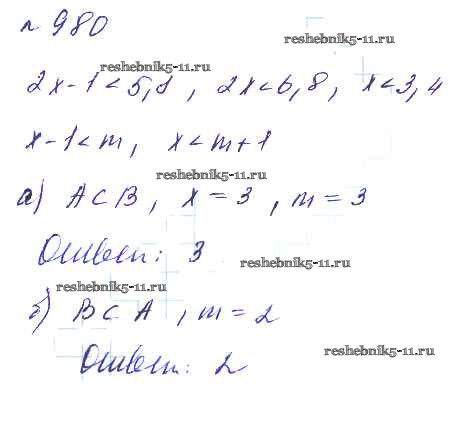 № 980
reshebnik5-11.ru
reshebnik5-11.ru
2x-1<5,8, 2x<6,8, x<3,4
x-1<m, x<m+1
reshebnik5-11.ru
а) A⊂B, x=3, m=3
Ответ: 3
reshebnik5-11.ru
reshebnik5-11.ru
б) B⊂A, m=2
Ответ: 2
reshebnik5-11.ru